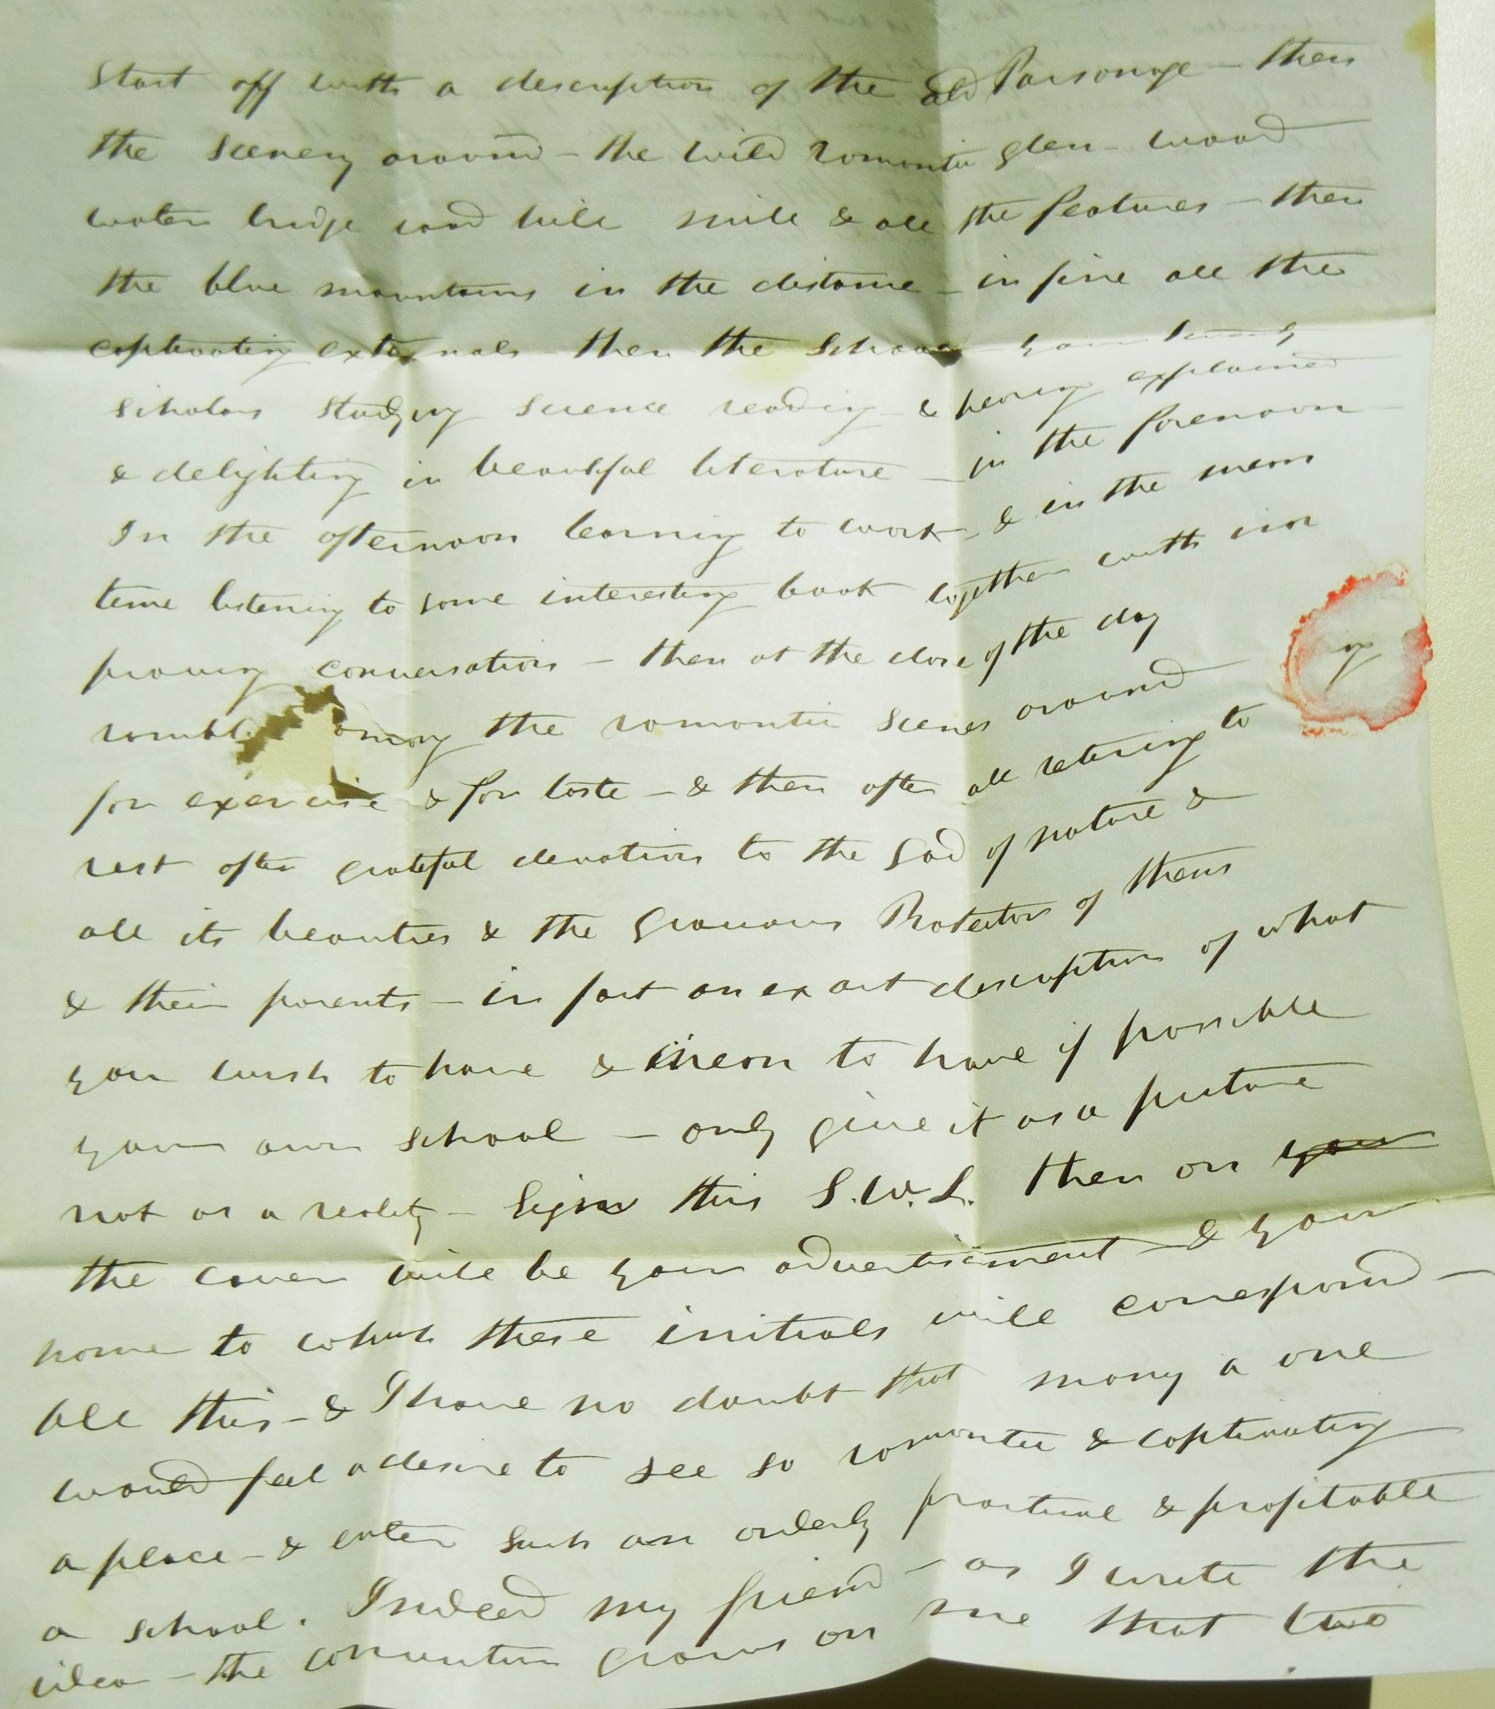 Start off with a description of the old Parsonage – then
the scenery around – the wild romantic glen – wood
water bridge road hill mill & all the features – then
the blue mountains in the distance – in fine all the
captivating externals – then the School – your twenty
scholars studying science reading & hearing explained
& delighting in beautiful literature – in the forenoon
In the afternoon learning to work – & in the mean
time listening to some interesting book together with im
proving conversation – then at the close of the day
among the romantic scenes around
for exercise & for taste – & then after all retiring to
rest after grateful devotion to the God of nature &
all its beauties & the Gracious Protector of theirs
& their parents – in fact an exact description of what
you wish to have & mean to have if possible
your own school – only give it as a picture
not as a reality – Sign this S.W.L. then on your
the cover will be your advertisement – & your
name to which these initials will correspond –
All this – & I have no doubt that many a one
would feel a desire to see so romantic & captivating
a place – & enter such an orderly practical & profitable
a school. Indeed my friend – as I write the
idea – the conviction grows on me that two